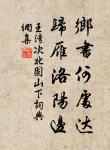 鄉書何處達
歸雁洛陽邊
王灣次北固山下詞典
網集